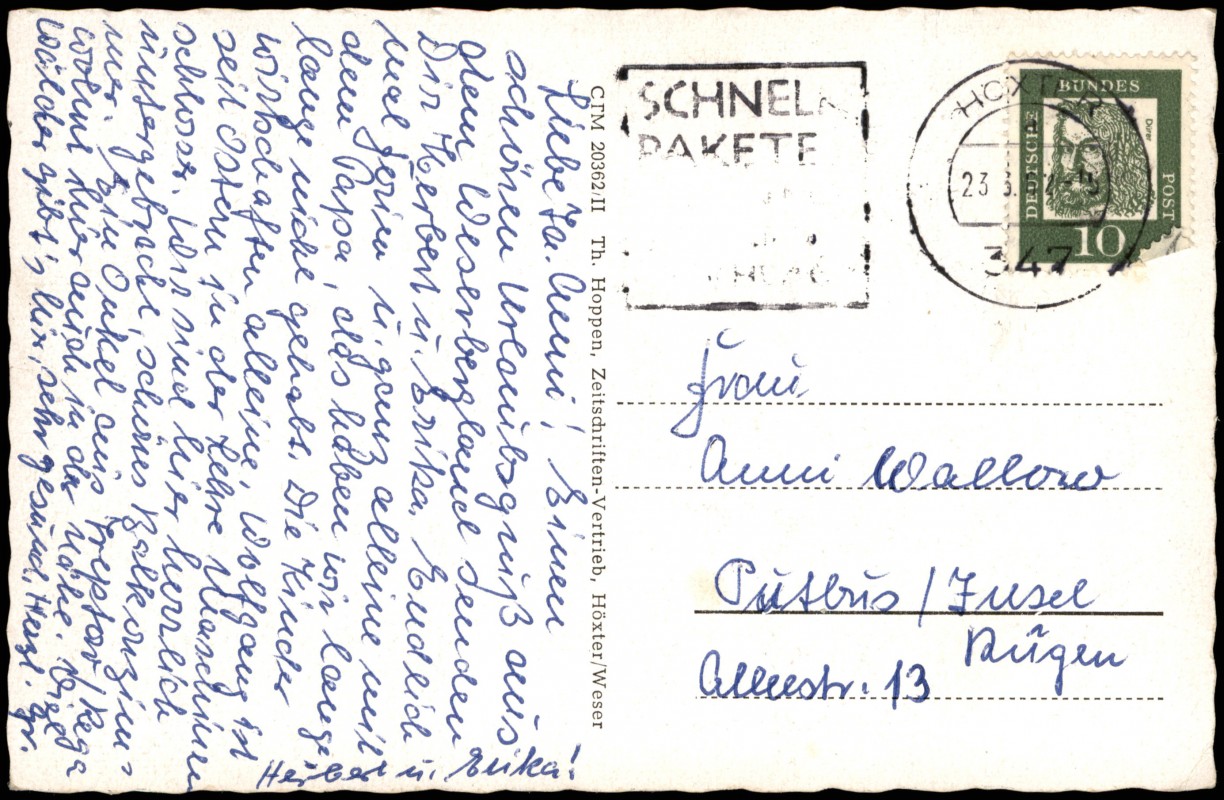 Liebe Ta. Anni! Einen
schönen Urlaubsgruß aus
dem Weserbergland senden
Dir Herbert u. Erika. Endlich
mal Ferien u. ganz alleine mit
dem Papa, das haben wir lange,
lange nicht gehabt. Die Kinder
wirtschaften alleine, Wolfgang ist
seit Ostern in der Lehre Maschinen
schlosser. Wir sind hier herrlich
untergebracht, schönes Balkonzim-
mer. Ein Onkel aus Treptow/Rega
wohnt hier auch in der Nähe. Viel
Wälder gibt's hier, sehr gesund. Herzl. Gr.
Herbert u. Erika!
CTM 20362/II Th. Hoppen, Zeitschriften-Vertrieb, Höxter/Weser
SCHNELL
PAKETE
HÖXTER
23
347
DEUTSCHE
BUNDES
POST
Dürer
10
Frau
Anni Wallow
Putbus / Insel
Rügen
Alleestr. 13